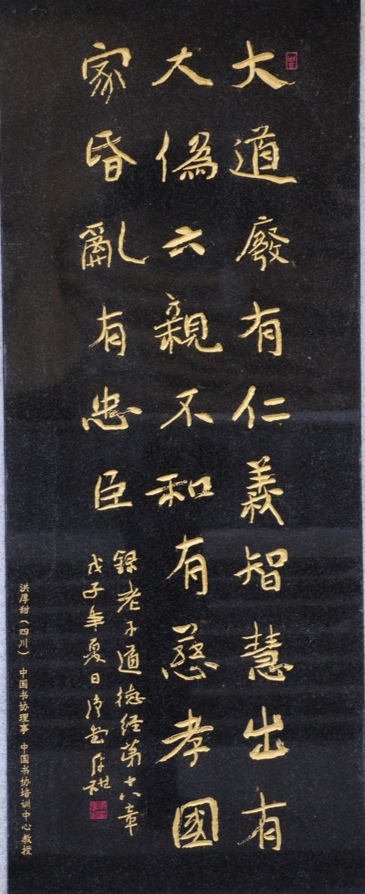 大道廢有仁義智慧出有
大偽六親不和有慈孝國
家昏亂有忠臣
錄老子道德經第十八章
戊子年夏日洪厚甜
洪厚甜（四川） 中国书协理事 中国书协培训中心教授